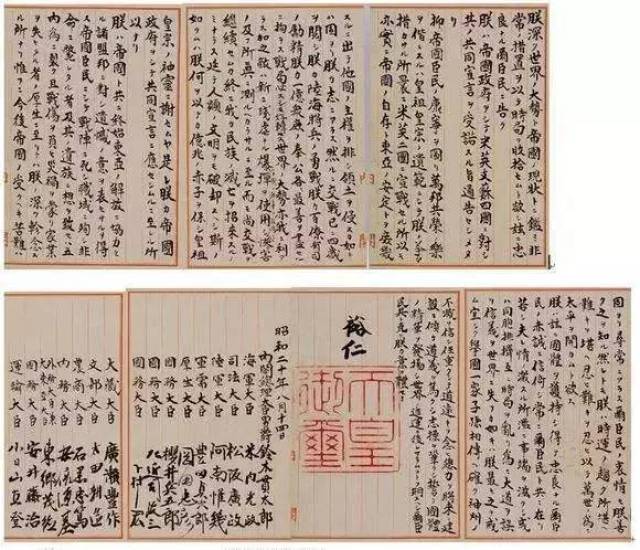 朕深ク世界ノ大勢ト帝國ノ現状トニ鑑ミ非
常ノ措置ヲ以テ時局ヲ收拾セムト欲シ茲ニ忠
良ナル爾臣民ニ告ク
朕ハ帝國政府ヲシテ米英支蘇四國ニ對シ
其ノ共同宣言ヲ受諾スル旨通告セシメタ
リ
抑帝國臣民ノ康寧ヲ圖リ萬邦共榮ノ樂
ヲ偕ニスルハ皇祖皇宗ノ遺範ニシテ朕ノ拳々
措カサル所曩ニ米英二國ニ宣戰セル所以モ
亦實ニ帝國ノ自存ト東亞ノ安定トヲ庶幾
スルニ出テ他國ノ主權ヲ排シ領土ヲ侵スカ如キ
ハ固ヨリ朕カ志ニアラス然ルニ交戰已ニ四歳
ヲ閲シ朕カ陸海將兵ノ勇戰朕カ百僚有司
ノ勵精朕カ一億衆庶ノ奉公各最善ヲ盡セルニ
拘ラス戰局必スシモ好轉セス世界ノ大勢亦我ニ利ア
ラス加之敵ハ新ニ殘虐ナル爆彈ヲ使用シ慘害
ノ及フ所眞ニ測ルヘカラサルニ至ル而モ尚交戰ヲ
繼續セムカ終ニ我カ民族ノ滅亡ヲ招來スルノ
ミナラス延テ人類ノ文明ヲモ破却スヘシ斯ノ
如クムハ朕何ヲ以テカ億兆ノ赤子ヲ保シ皇祖
皇宗ノ神靈ニ謝セムヤ是レ朕カ帝國
政府ヲシテ共同宣言ニ應セシムルニ至レル所
以ナリ
朕ハ帝國ト共ニ終始東亞ノ解放ニ協力セ
ル諸盟邦ニ對シ遺憾ノ意ヲ表セサルヲ得
ス帝國臣民ニシテ戰陣ニ死シ職域ニ殉シ非
命ニ斃レタル者及其ノ遺族ニ想ヲ致セハ五
内爲ニ裂ク且戰傷ヲ負ヒ災禍ヲ蒙リ家業
ヲ失ヒタル者ノ厚生ニ至リテハ朕ノ深ク軫念ス
ル所ナリ惟フニ今後帝國ノ受クヘキ苦難ハ
固ヨリ尋常ニアラス爾臣民ノ衷情モ朕善
ク之ヲ知ル然レトモ朕ハ時運ノ趨ク所堪ヘ
難キヲ堪ヘ忍ヒ難キヲ忍ヒ以テ萬世ノ爲ニ
太平ヲ開カムト欲ス
朕ハ茲ニ國體ヲ護持シ得テ忠良ナル爾臣
民ノ赤誠ニ信倚シ常ニ爾臣民ト共ニ在リ
若シ夫レ情ノ激スル所濫ニ事端ヲ滋クシ或
ハ同胞排擠互ニ時局ヲ亂リ爲ニ大道ヲ誤
リ信義ヲ世界ニ失フカ如キハ朕最モ之ヲ戒
ム宜シク擧國一家子孫相傳ヘ確ク神州ノ
不滅ヲ信シ任重クシテ道遠キヲ念ヒ總力ヲ將來ノ建
設ニ傾ケ道義ヲ篤クシ志操ヲ鞏クシ誓テ國體
ノ精華ヲ發揚シ世界ノ進運ニ後レサラムコトヲ期スヘシ爾臣
民其レ克ク朕カ意ヲ體セヨ
裕仁
天皇
御璽
昭和二十年八月十四日
内閣總理大臣男爵 鈴木貫太郎
海軍大臣 米内光政
司法大臣 松阪廣政
陸軍大臣 阿南惟幾
軍需大臣 豊田貞次郎
厚生大臣 岡田忠彦
國務大臣 櫻井兵五郎
國務大臣 左近司政三
國務大臣 下村宏
大藏大臣 廣瀬豊作
文部大臣 太田耕造
農商大臣 石黒忠篤
内務大臣 安倍源基
外務大臣兼大東亞大臣 東郷茂徳
國務大臣 安井藤治
運輸大臣 小日山直登